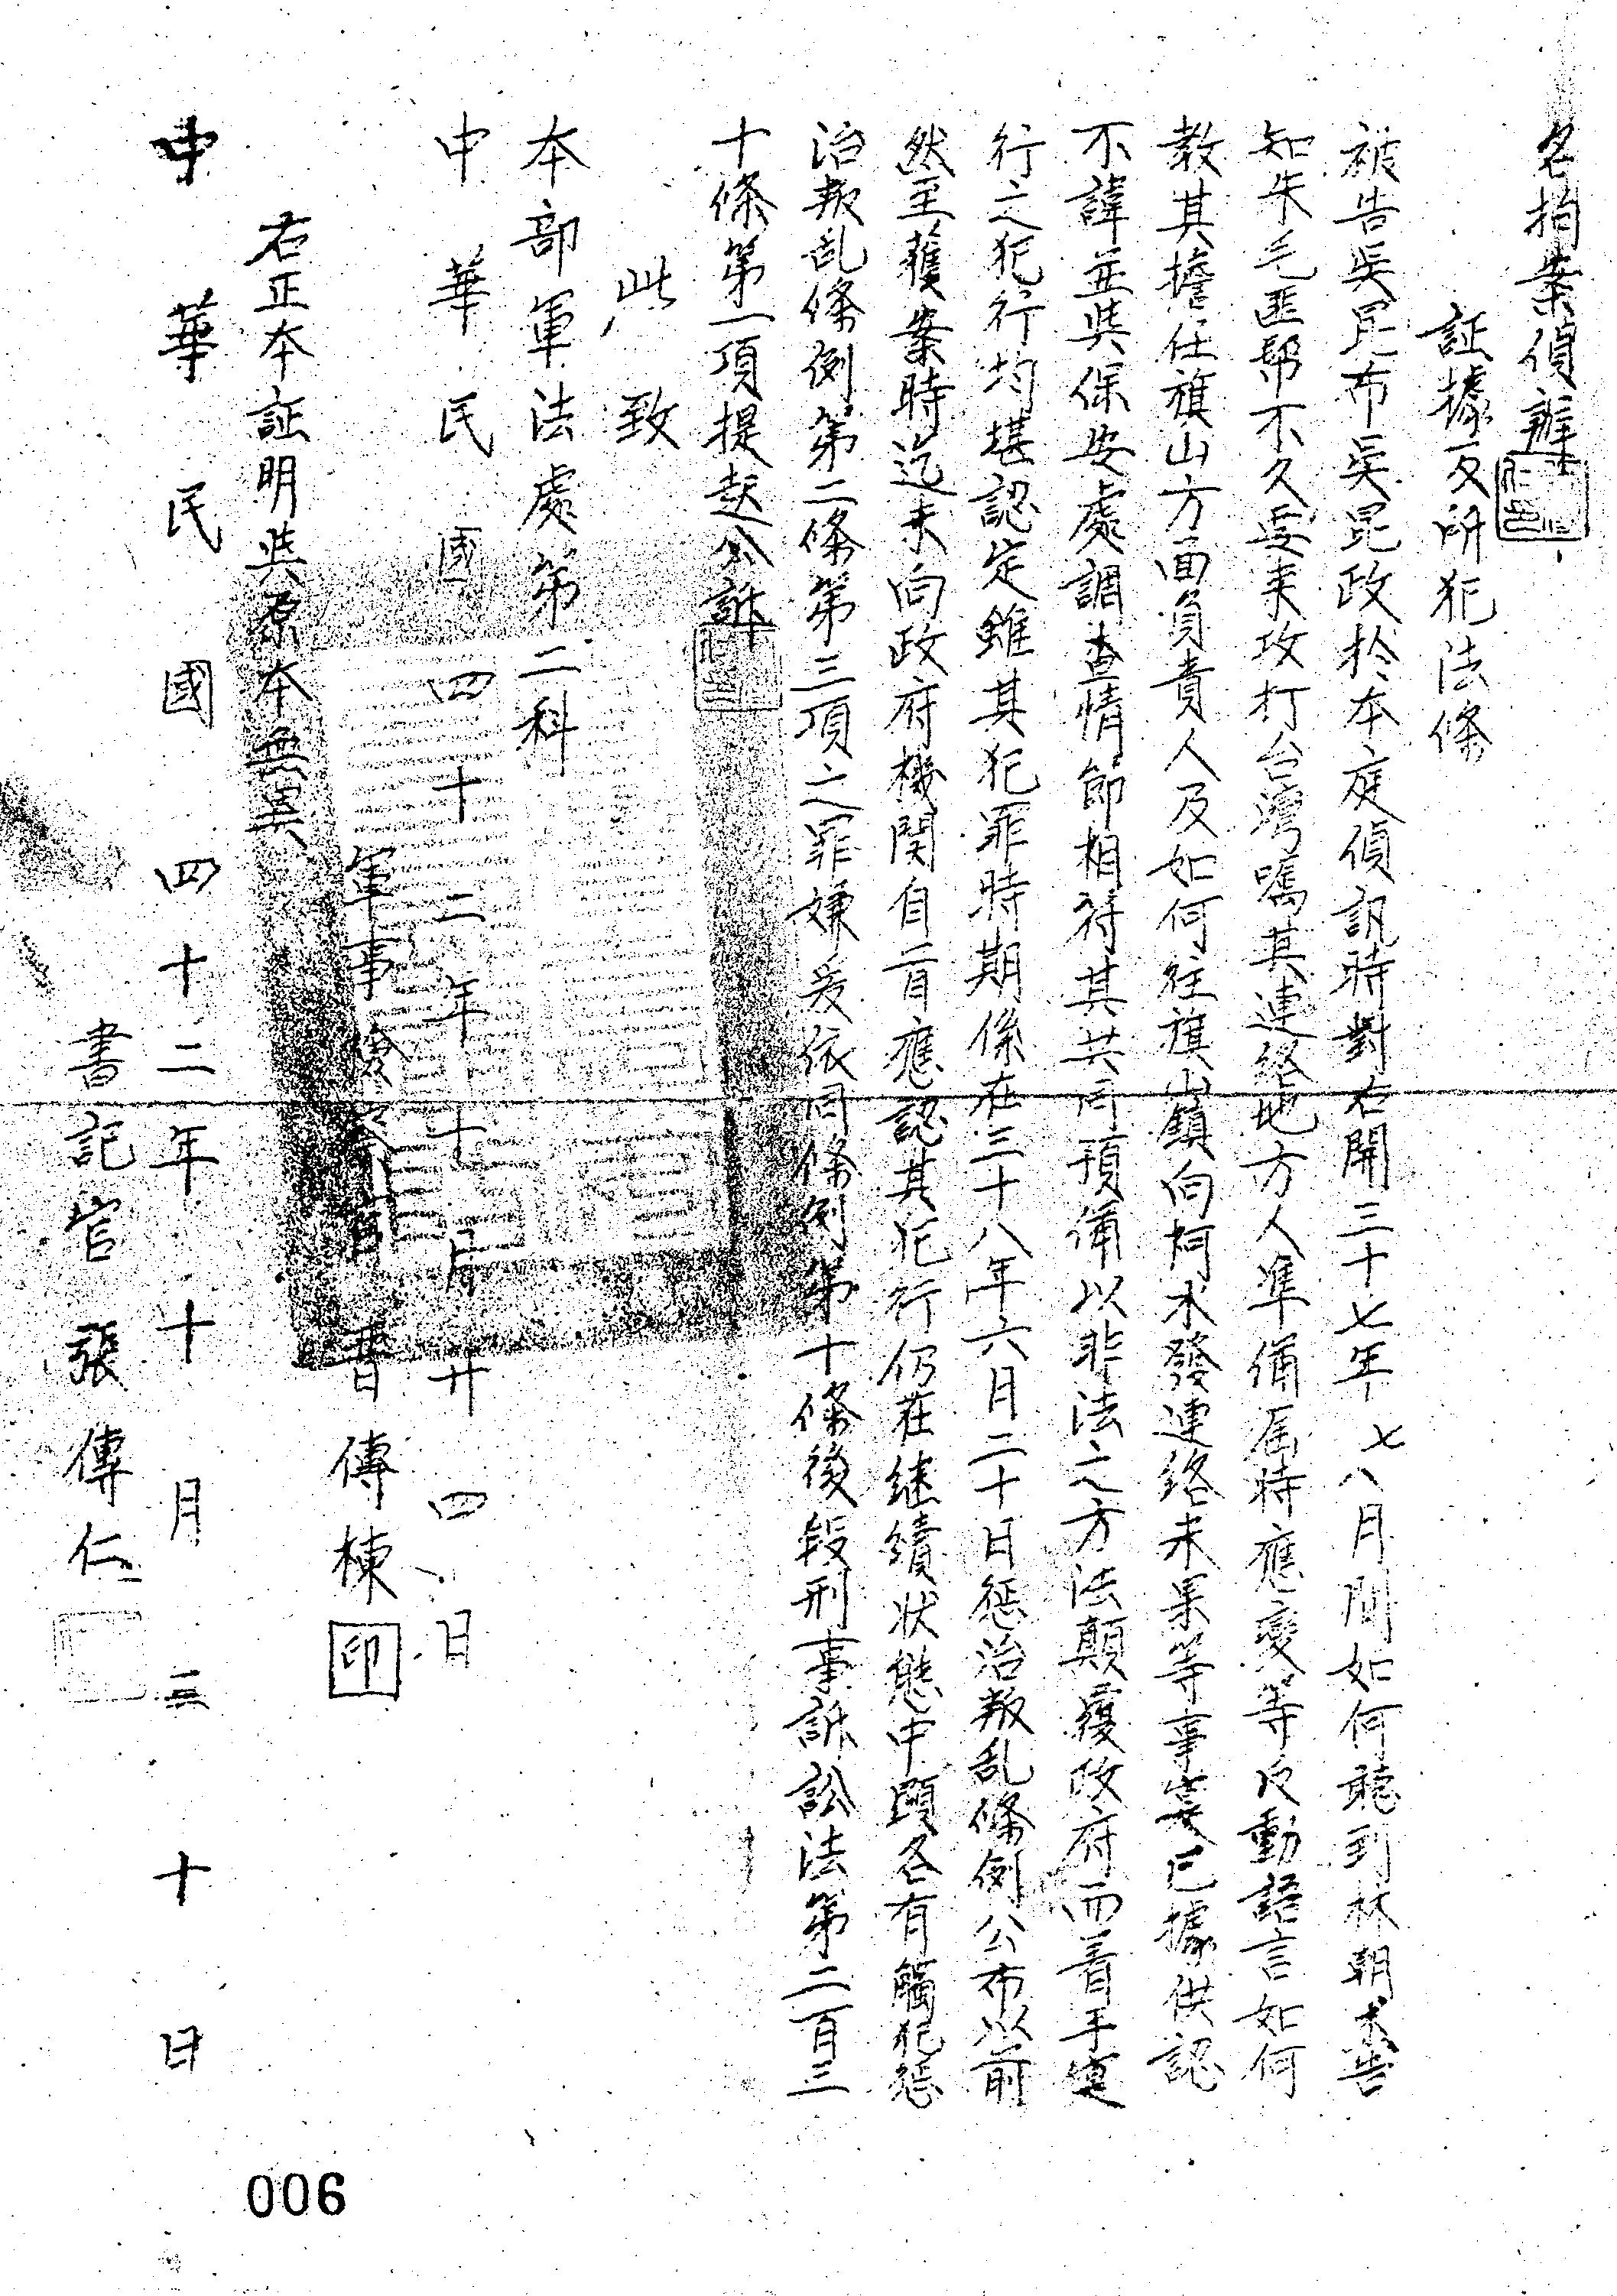 名拘案偵辦
証據及所犯法條
被告吳昆布吳昆政於本庭偵訊時對右開三十七年七八月間如何聽到林朝木告
知朱毛匪幫不久要來攻打台灣囑其連絡地方人準備屆時應變等反動語言如何
教其擔任旗山方面負責人及如何往旗山鎮向柯木發連絡未果等事實已據供認
不諱並與保安處調查情節相符其共同預備以非法之方法顛覆政府而着手實
行之犯行均堪認定雖其犯罪時期係在三十八年六月二十日懲治叛乱條例公布以前
然至獲案時迄未向政府機関自首應認其犯行仍在継續狀態中顯各有觸犯懲
治叛乱條例第二條第三項之罪嫌爰依同條例第十條後段刑事訴訟法第二百三
十條第一項提起公訴
此致
本部軍法處第二科
中華民國四十二年十月廿四日
軍事檢察官 曹傳棟 印
右正本証明與原本無異
中華民國四十二年十月三十日
書記官張傳仁
006